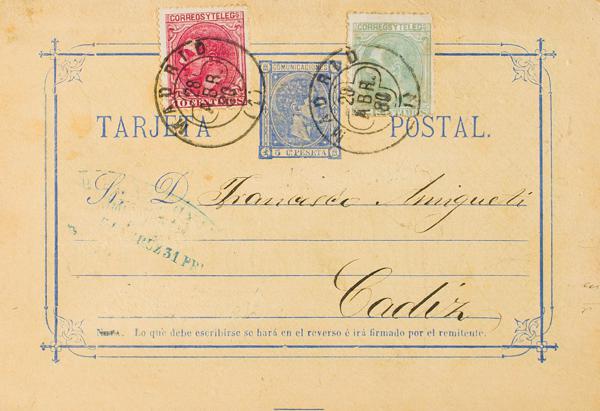 CORREOS Y TELEGS
CORREOS Y TELEGS
COMUNICACIONES
10 CENTOS
MADRID
20
ABR
80
(1)
MADRID
20
ABR.
80
(1)
TARJETA POSTAL.
5 CS PESETA
Sr. D. Francisco Amigueti
31 PR
Cadiz
NOTA. Lo que debe escribirse se hará en el reverso é irá firmado por el remitente.